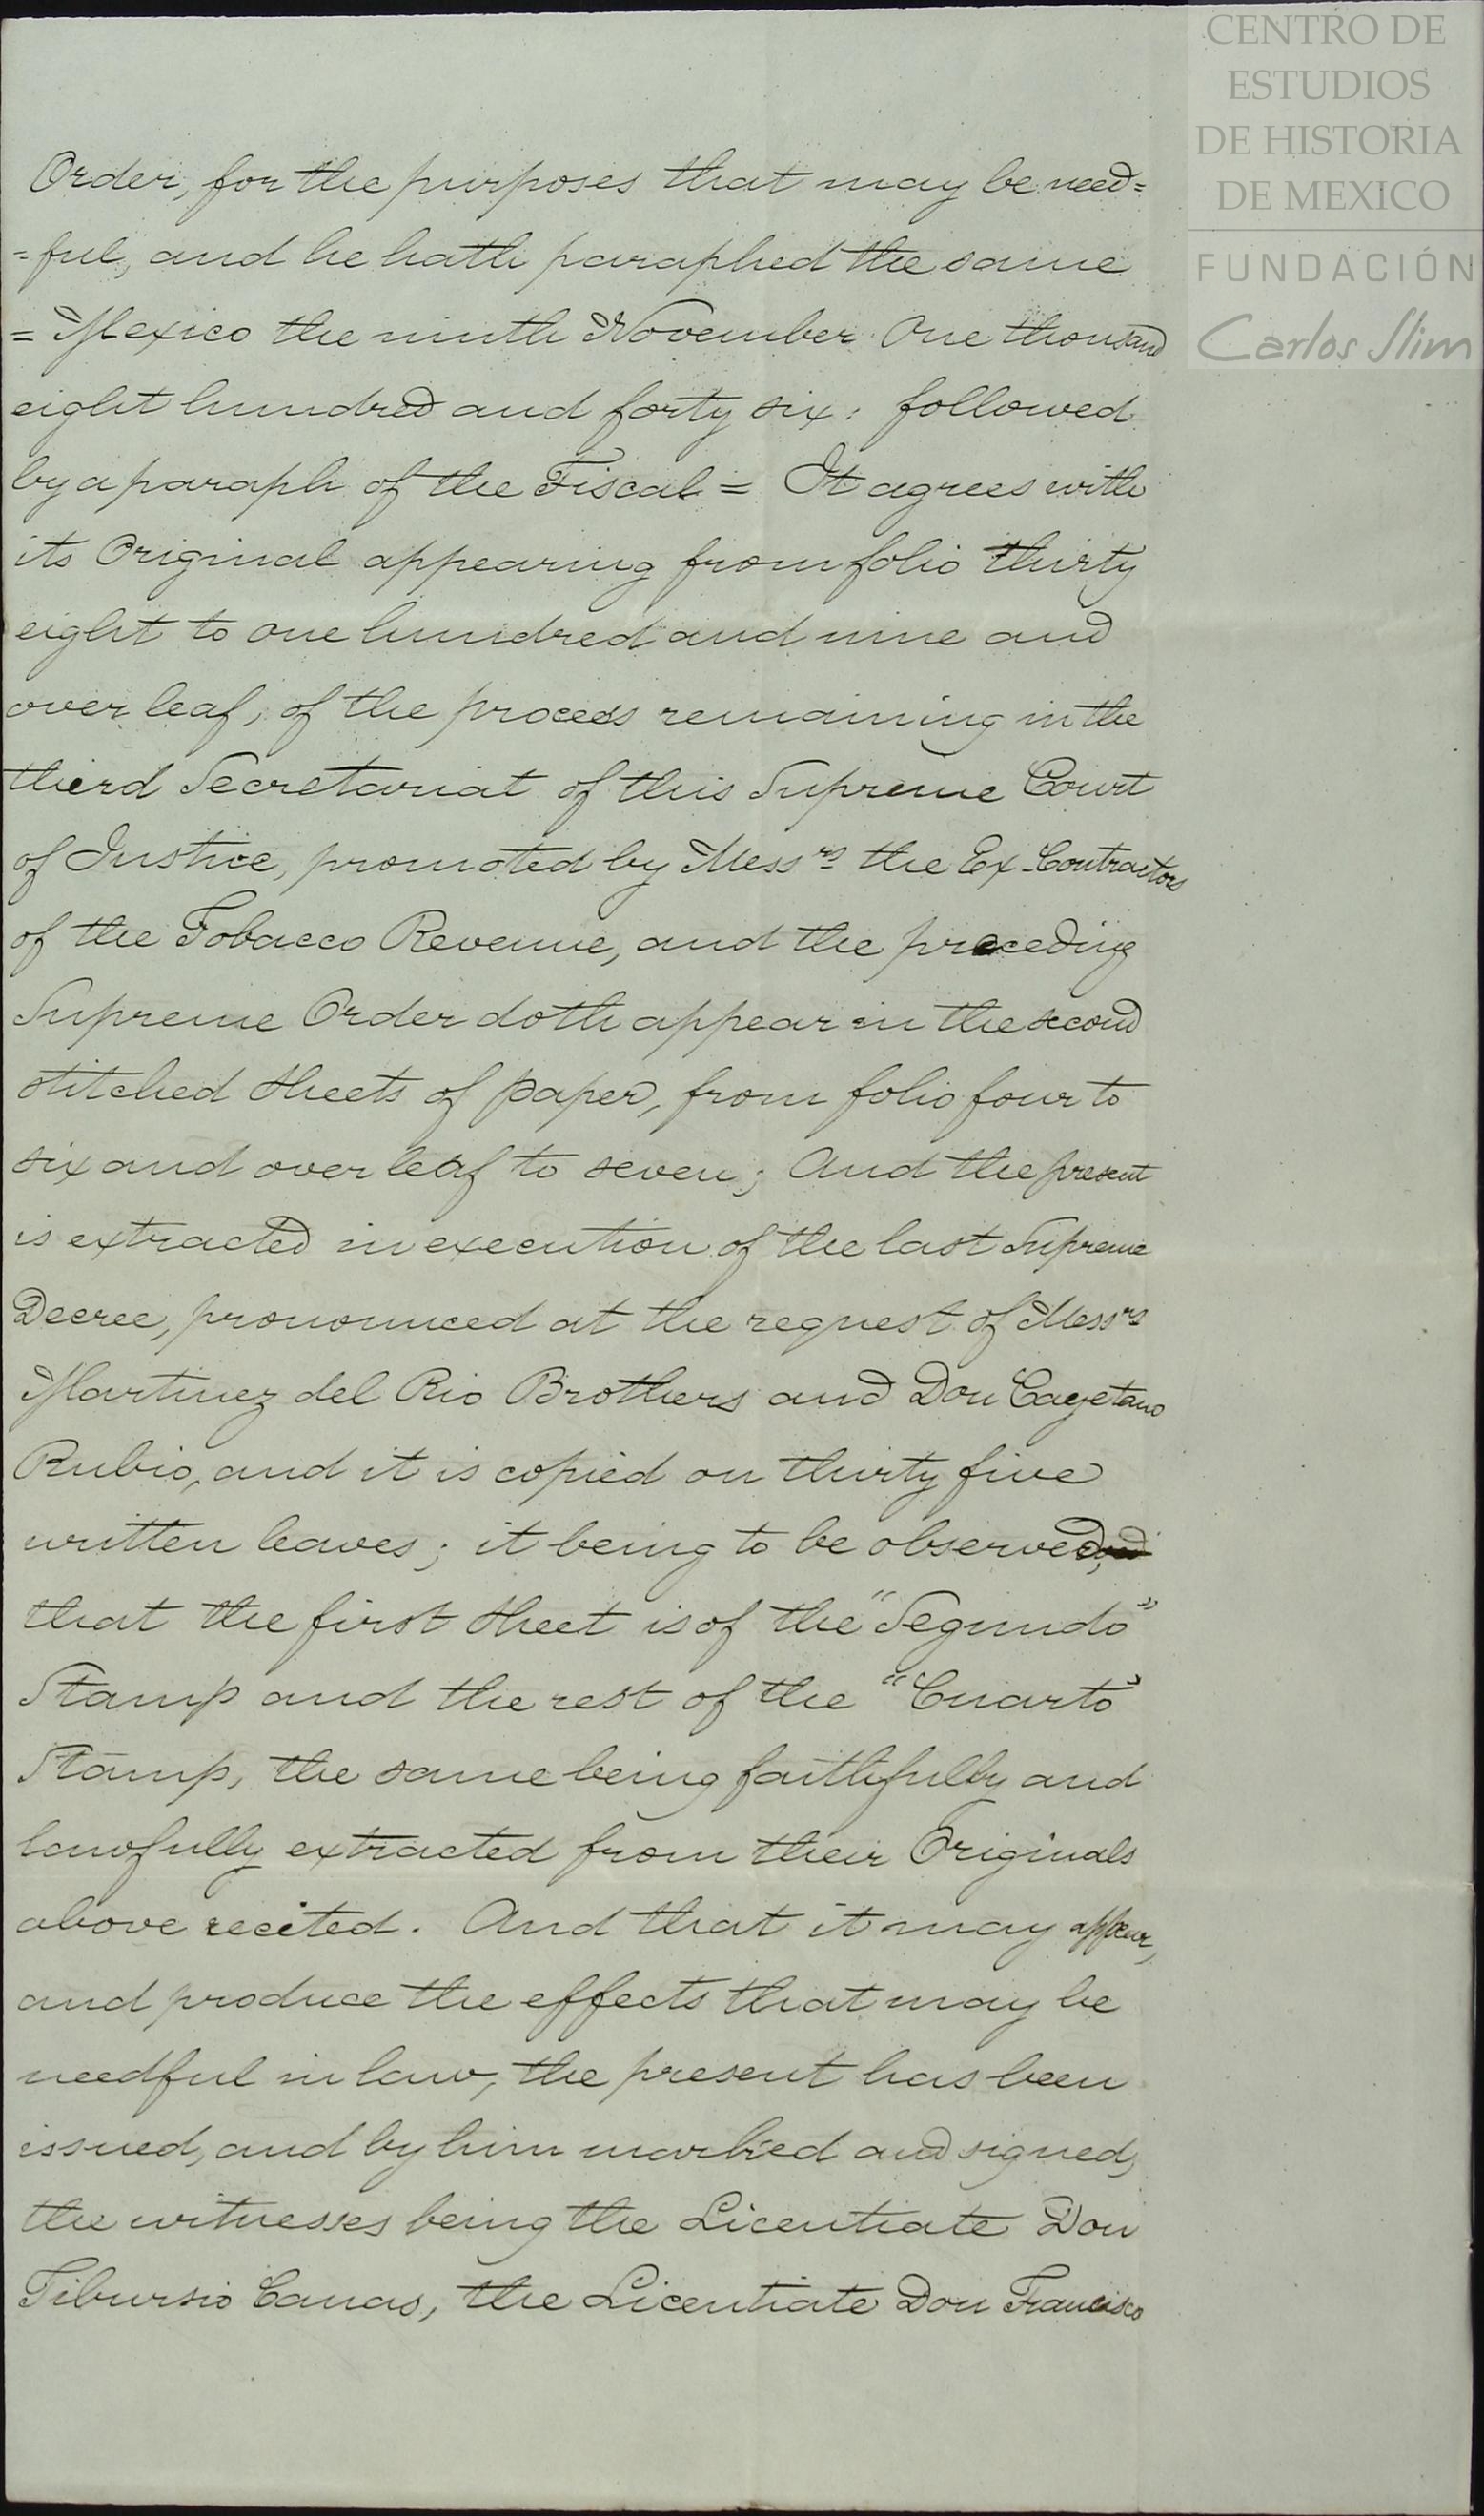 CENTRO DE
ESTUDIOS
DE HISTORIA
DE MEXICO
FUNDACIÓN
Carlos Slim
Order, for the purposes that may be need=
=ful, and he hath paraphed the same
= Mexico the ninth November One thousand
eight hundred and forty six: followed
by a paraph of the Fiscal = It agrees with
its Original appearing from folio thirty
eight to one hundred and nine and
over leaf, of the process remaining in the
third Secretariat of this Supreme Court
of Justice, promoted by Messrs the Ex-Contractors
of the Tobacco Revenue, and the preceding
Supreme Order doth appear in the second
stitched sheets of paper, from folio four to
six and over leaf to seven; And the present
is extracted in execution of the last Supreme
Decree, pronounced at the request of Messrs
Martinez del Rio Brothers and Don Cayetano
Rubio, and it is copied on thirty five
written leaves; it being to be observed,
that the first sheet is of the "Segundo"
Stamp and the rest of the "Cuarto"
Stamp, the same being faithfully and
lawfully extracted from their Originals
above recited. And that it may appear,
and produce the effects that may be
needful in law, the present has been
issued, and by him marked and signed,
the witnesses being the Licentiate Don
Tibursio Canas, the Licentiate Don Francisco